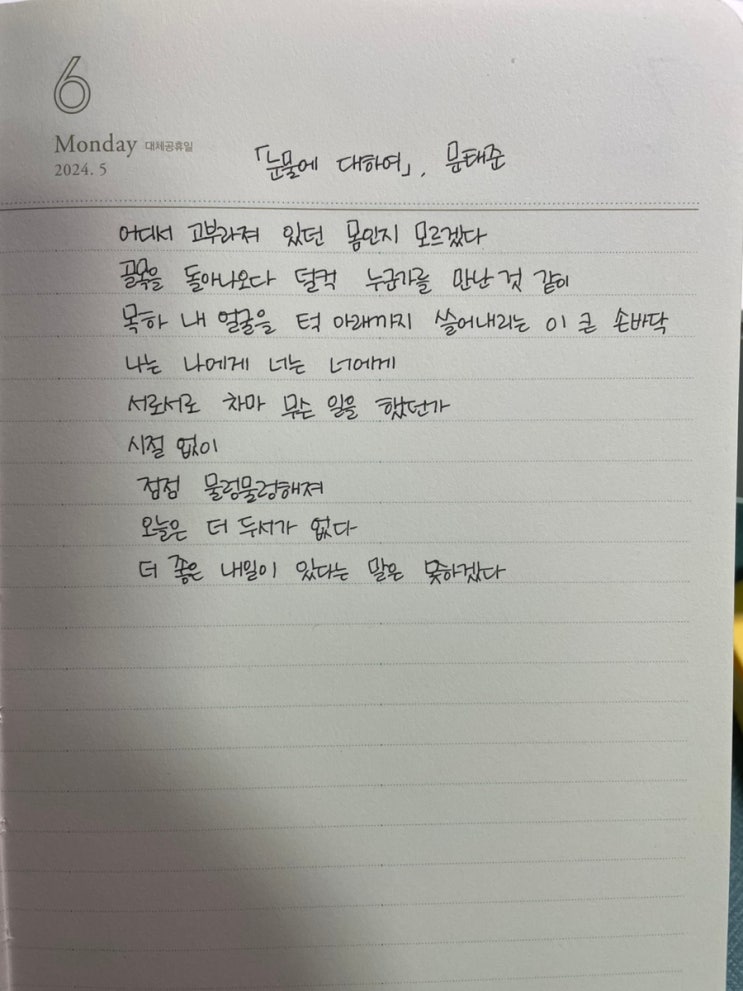 6
Monday 대체공휴일
2024. 5
「눈물에 대하여」, 문태준
어디서 고부라져 있던 몸인지 모르겠다
골목을 돌아나오다 덜컥 누군가를 만난 것 같이
목하 내 얼굴을 턱 아래까지 쓸어내리는 이 큰 손바닥
나는 나에게 너는 너에게
서로서로 차마 무슨 일을 했던가
시절 없이
점점 물렁물렁해져
오늘은 더 두서가 없다
더 좋은 내일이 있다는 말은 못하겠다